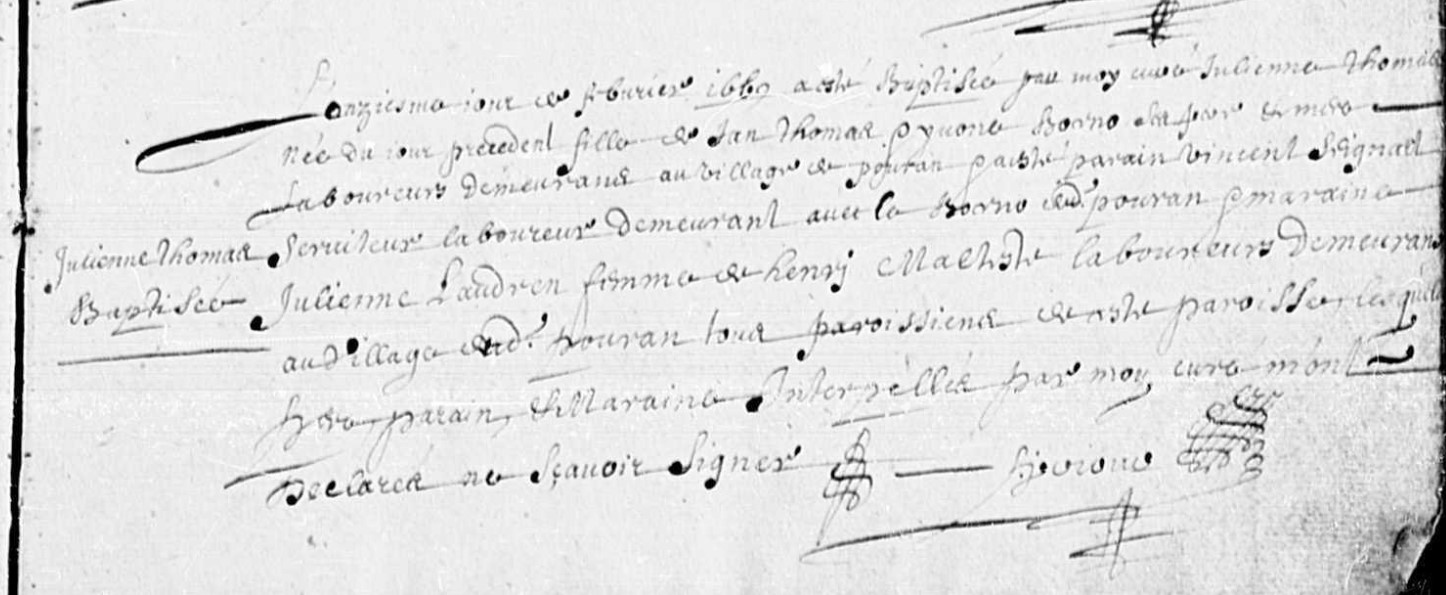 L'onziesme iour de febvrier 1669 a esté Baptisée par moy curé Julienne Thomas
née du iour precedent fille de Jan Thomas & yvone Borno ses per et mere
Laboureurs demeurans au village de pouran & a esté parain vincent
Julienne Thomas
Baptisée
Serviteur laboureur demeurant avec le Borno aud. pouran & maraine
Julienne Landren femme de henry laboureurs demeurans
au village dud. pouran tous paroissiens de ceste paroisse, lesquels
pere parain, et Maraine Interpellés par moy curé m'ont
Declarés ne sçavoir signer